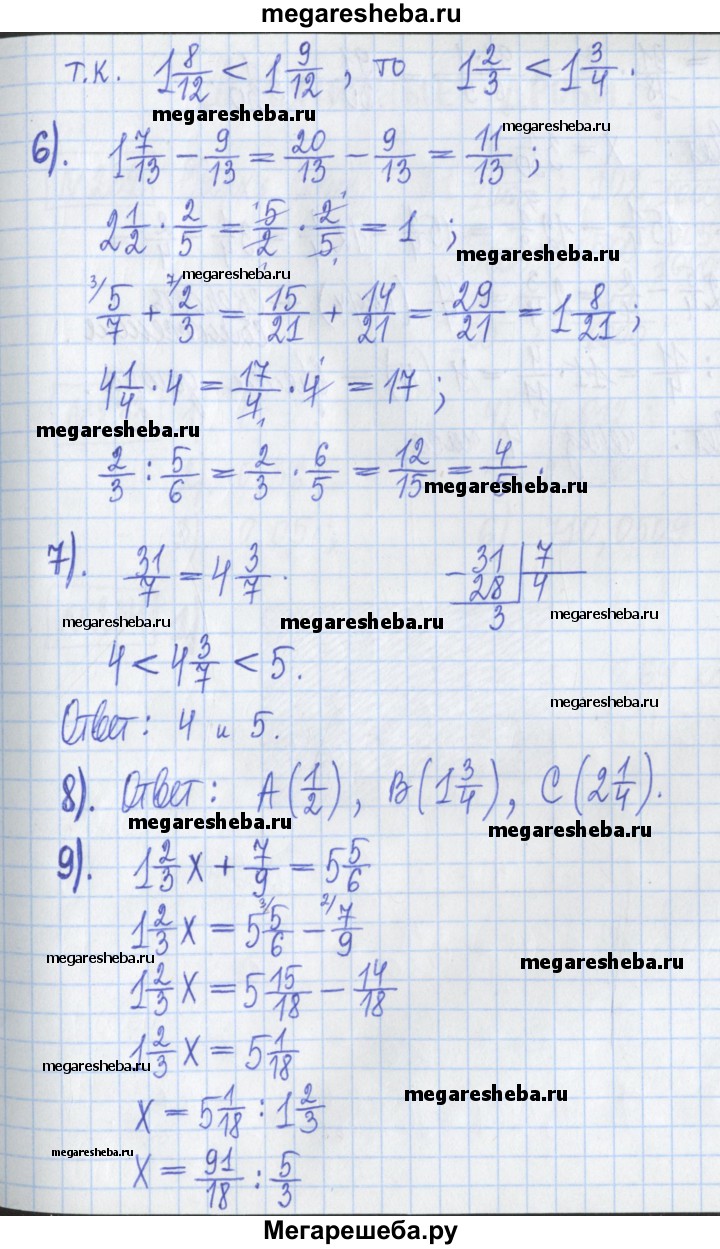 megaresheba.ru
т.к. 1 8/12 < 1 9/12, то 1 2/3 < 1 3/4.
megaresheba.ru megaresheba.ru
6). 1 7/13 − 9/13 = 20/13 − 9/13 = 11/13;
2 1/2 · 2/5 = 5/2 · 2/5 = 1;
megaresheba.ru
megaresheba.ru
3/ 5/7 + 7/ 2/3 = 15/21 + 14/21 = 29/21 = 1 8/21;
4 1/4 · 4 = 17/4 · 4 = 17;
megaresheba.ru
2/3 : 5/6 = 2/3 · 6/5 = 12/15 = 4/5.
megaresheba.ru
7). 31/7 = 4 3/7. −31 | 7
28 | 4
3
megaresheba.ru megaresheba.ru megaresheba.ru
4 < 4 3/7 < 5.
Ответ: 4 и 5.
megaresheba.ru
8). Ответ: A(1/2), B(1 3/4), C(2 1/4).
megaresheba.ru megaresheba.ru
9). 1 2/3 X + 7/9 = 5 5/6
1 2/3 X = 5 3/ 5/6 − 2/ 7/9
megaresheba.ru megaresheba.ru
1 2/3 X = 5 15/18 − 14/18
1 2/3 X = 5 1/18
megaresheba.ru megaresheba.ru
X = 5 1/18 : 1 2/3
megaresheba.ru
X = 91/18 : 5/3
Мегарешеба.ру